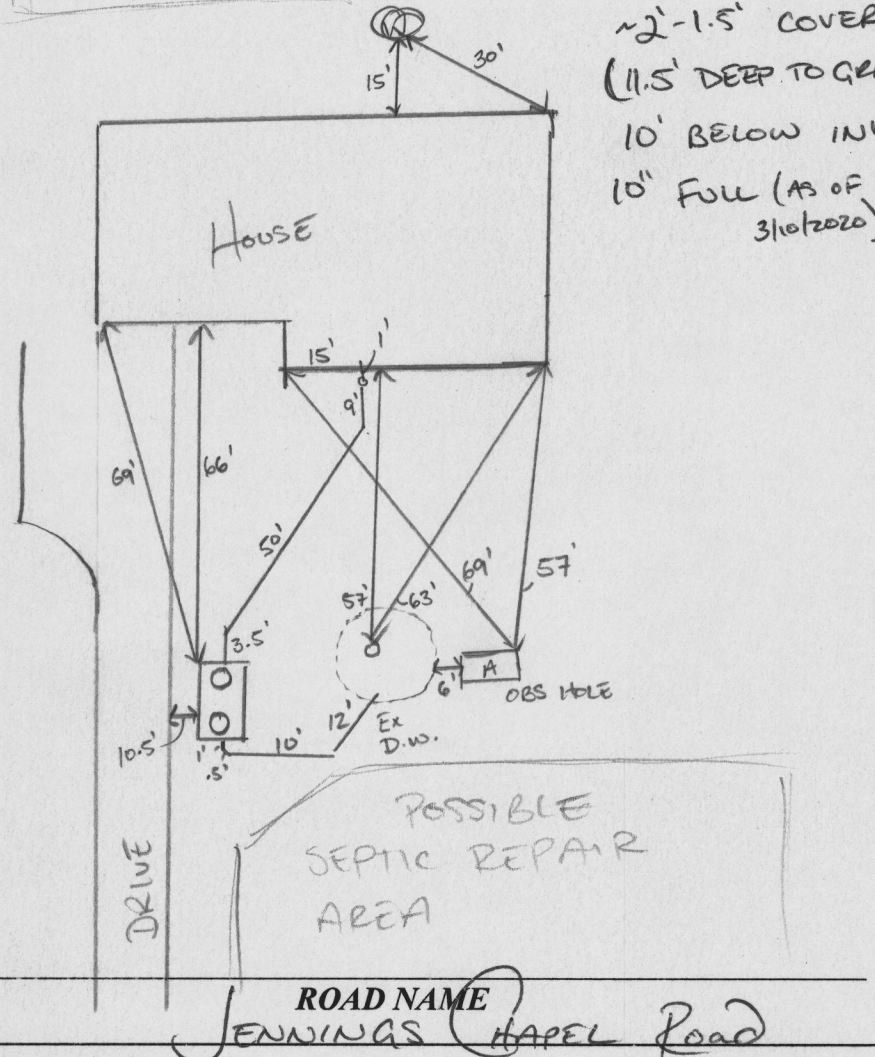 ~2'-1.5' COVER
(11.5' DEEP TO
10' BELOW
10" FULL (AS OF
3/10/2020)
30'
15'
HOUSE
15'
1'
9'
69'
66'
50'
57'
63'
69'
57'
3.5'
6'
A
OBS HOLE
10.5'
1'
.5'
10'
12'
Ex
D.W.
DRIVE
POSSIBLE
SEPTIC REPAIR
AREA
ROAD NAME
JENNINGS CHAPEL Road